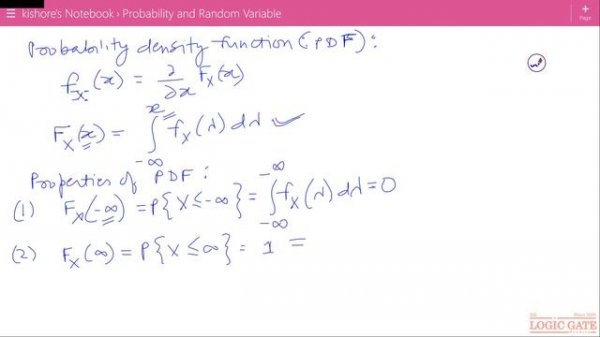 kishore's Notebook › Probability and Random Variable
Page
Probability density function (PDF):
f_X(x) = ∂/∂x F_X(x)
F_X(x) = ∫_{-∞}^{x} f_X(λ) dλ ✓
Properties of PDF:
(1) F_X(-∞) = P{X ≤ -∞} = ∫_{-∞}^{-∞} f_X(λ) dλ = 0
(2) F_X(∞) = P{X ≤ ∞} = 1 =
LOGIC GATE